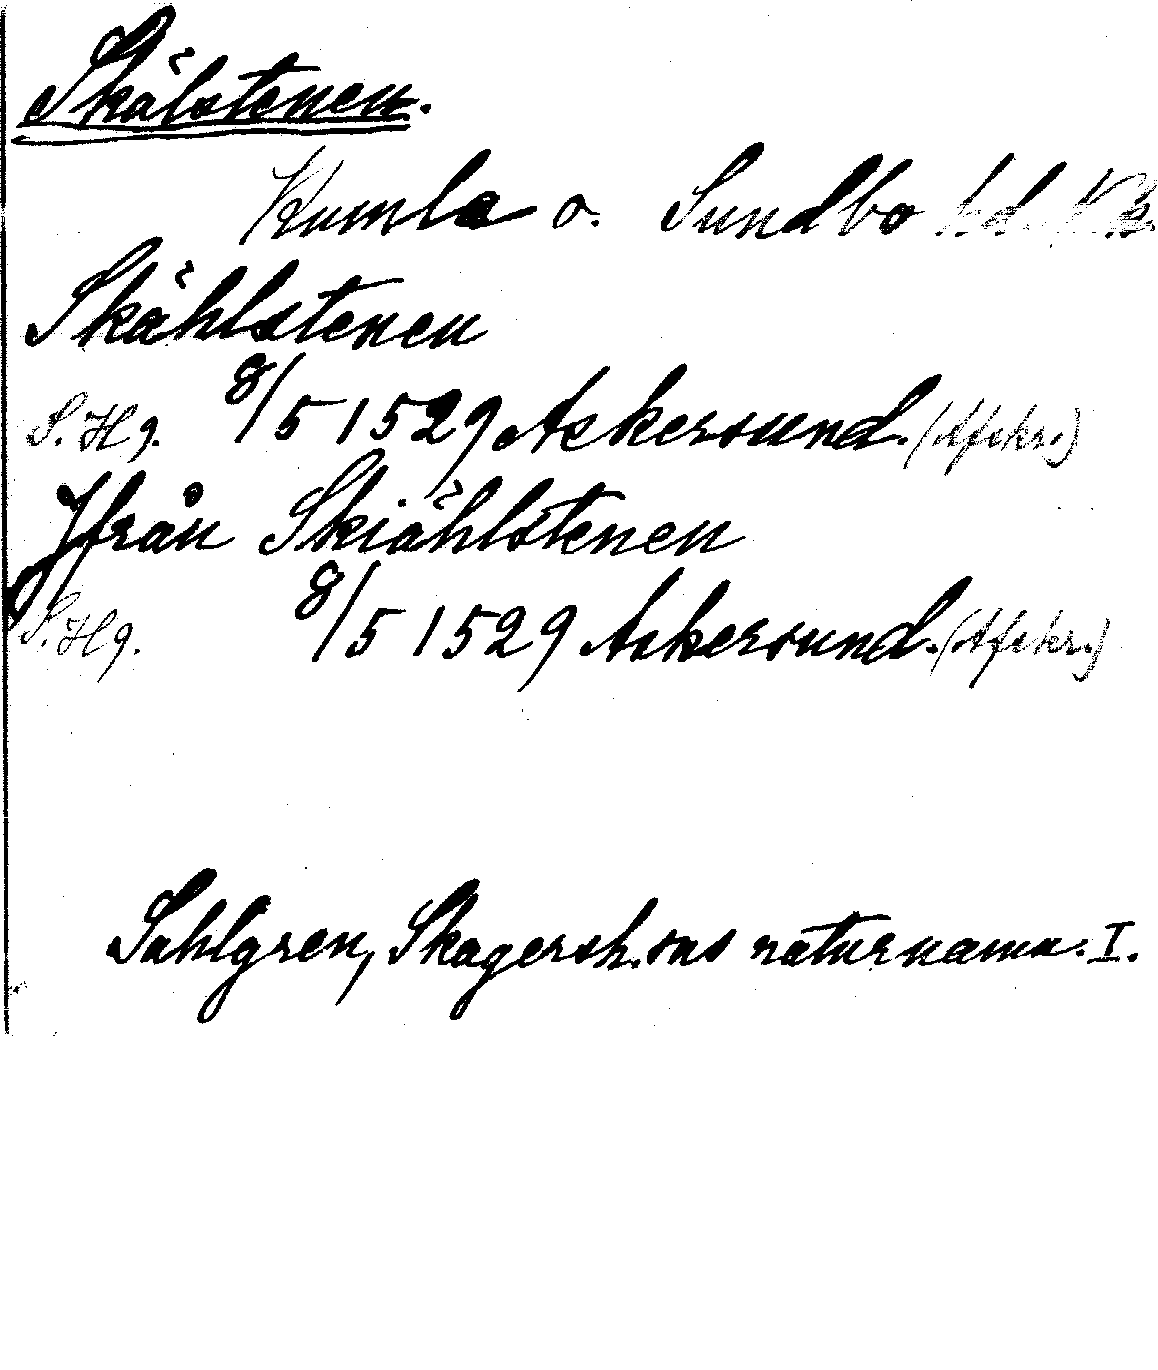 Skälstenen.
Kumla o. Sundbo hd. Nke.
Skählstenen
S. Hg. 8/5 1529 Askersund. (Afskr.)
Jfrån Skiählstenen
S. Hg. 8/5 1529 Askersund. (Afskr.)
Sahlgren, Skagersh:ms naturnamn. I.